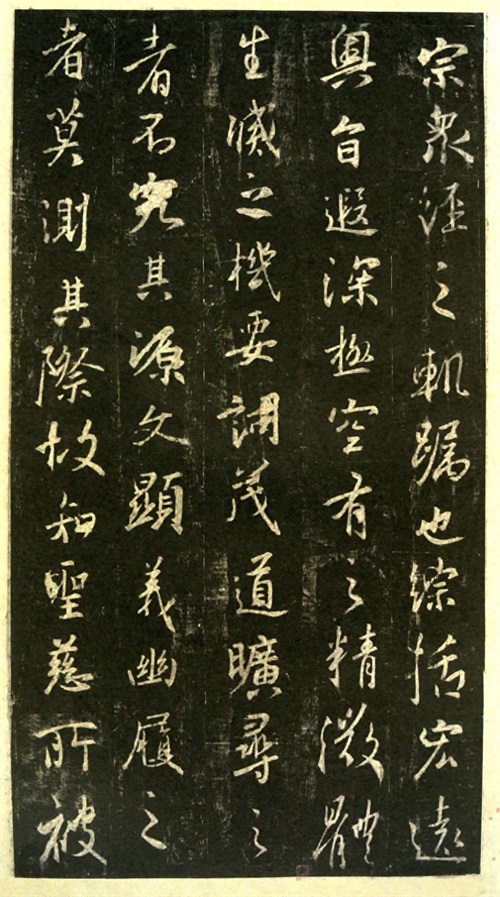 宗衆經之軌躅也綜括宏遠
奧旨遐深極空有之精微體
生滅之機要詞茂道曠尋之
者不究其源文顯義幽履之
者莫測其際故知聖慈所被